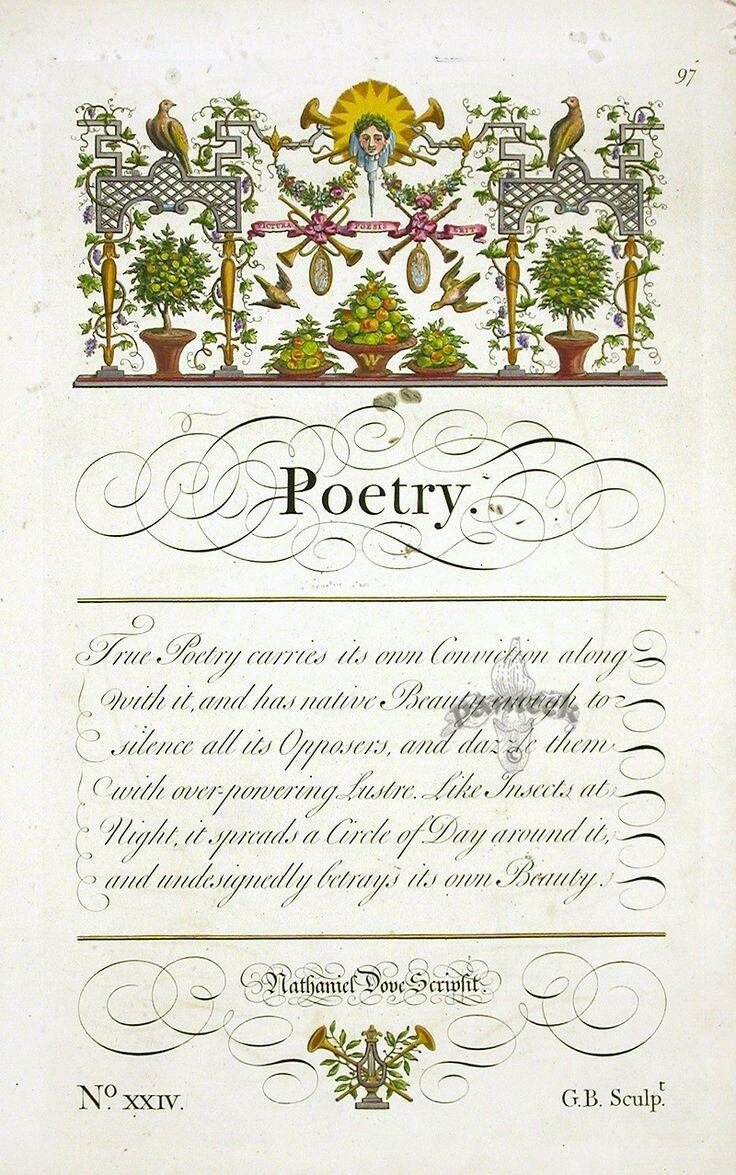 97
PICTURA POESIS ERIT
W
Poetry.
True Poetry carries its own Conviction along
with it, and has native Beauty enough to
silence all its Opposers, and dazzle them
with over-powering Lustre. Like Insects at
Night, it spreads a Circle of Day around it,
and undesignedly betrays its own Beauty.
Nathaniel Dove Scripsit.
No. XXIV.
G.B. Sculpt.